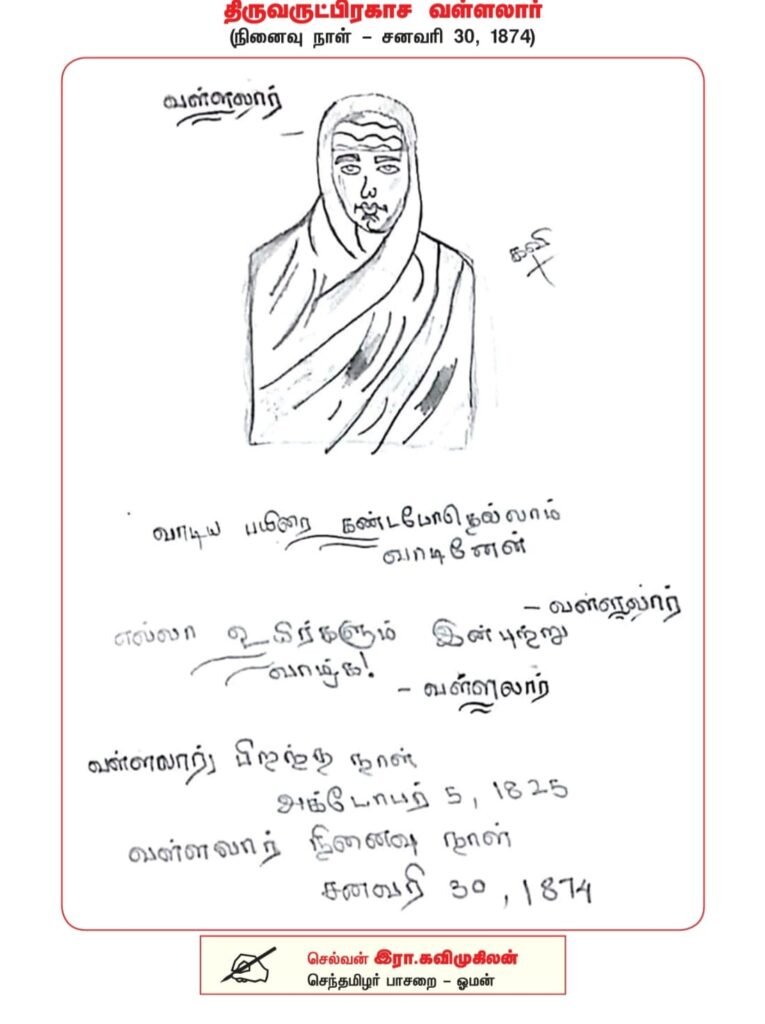 திருவருட்பிரகாச வள்ளலார்
(நினைவு நாள் – சனவரி 30, 1874)
வள்ளலார்
கவி
வாடிய பயிரை கண்டபோதெல்லாம்
வாடினேன்
– வள்ளலார்
எல்லா உயிர்களும் இன்புற்று
வாழ்க!
– வள்ளலார்
வள்ளலார் பிறந்த நாள்
அக்டோபர் 5, 1825
வள்ளலார் நினைவு நாள்
சனவரி 30, 1874
செல்வன் இரா.கவிமுகிலன்
செந்தமிழர் பாசறை – ஓமன்